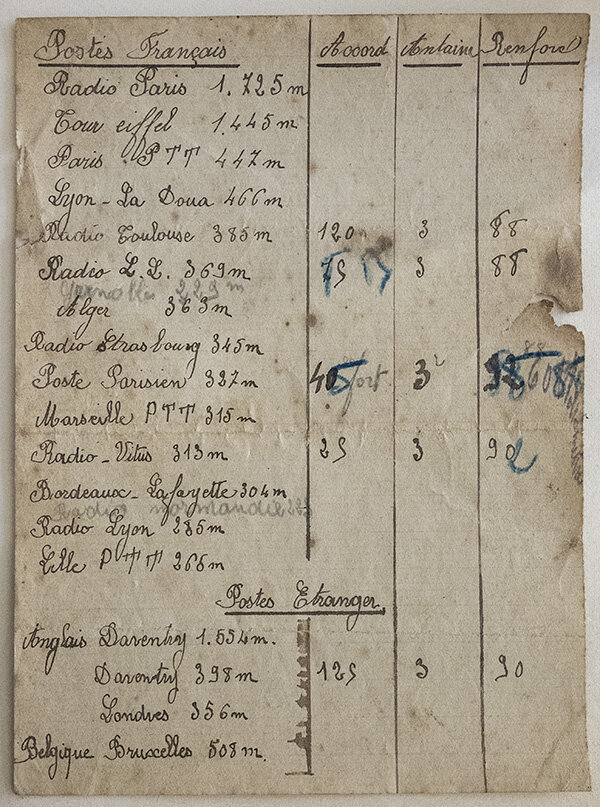 Postes Français Accord Antaine Renford
Radio Paris 1.725 m
Tour eiffel 1.445 m
Paris PTT 447 m
Lyon-La Doua 466 m
Radio Toulouse 385 m 120 3 88
Radio L.L. 369 m 75 3 88
Grenoble 229 m
Alger 363 m
Radio Strasbourg 345 m
Poste Parisien 327 m 40 fort 3
Marseille PTT 315 m
Radio-Vitus 313 m 25 3 90
Bordeaux-Lafayette 304 m
Radio normandie
Radio Lyon 285 m
Lille PTT 266 m
Postes Etranger
Anglais Daventry 1.554 m.
Daventry 398 m 125 3 90
Londres 356 m
Belgique Bruxelles 508 m.